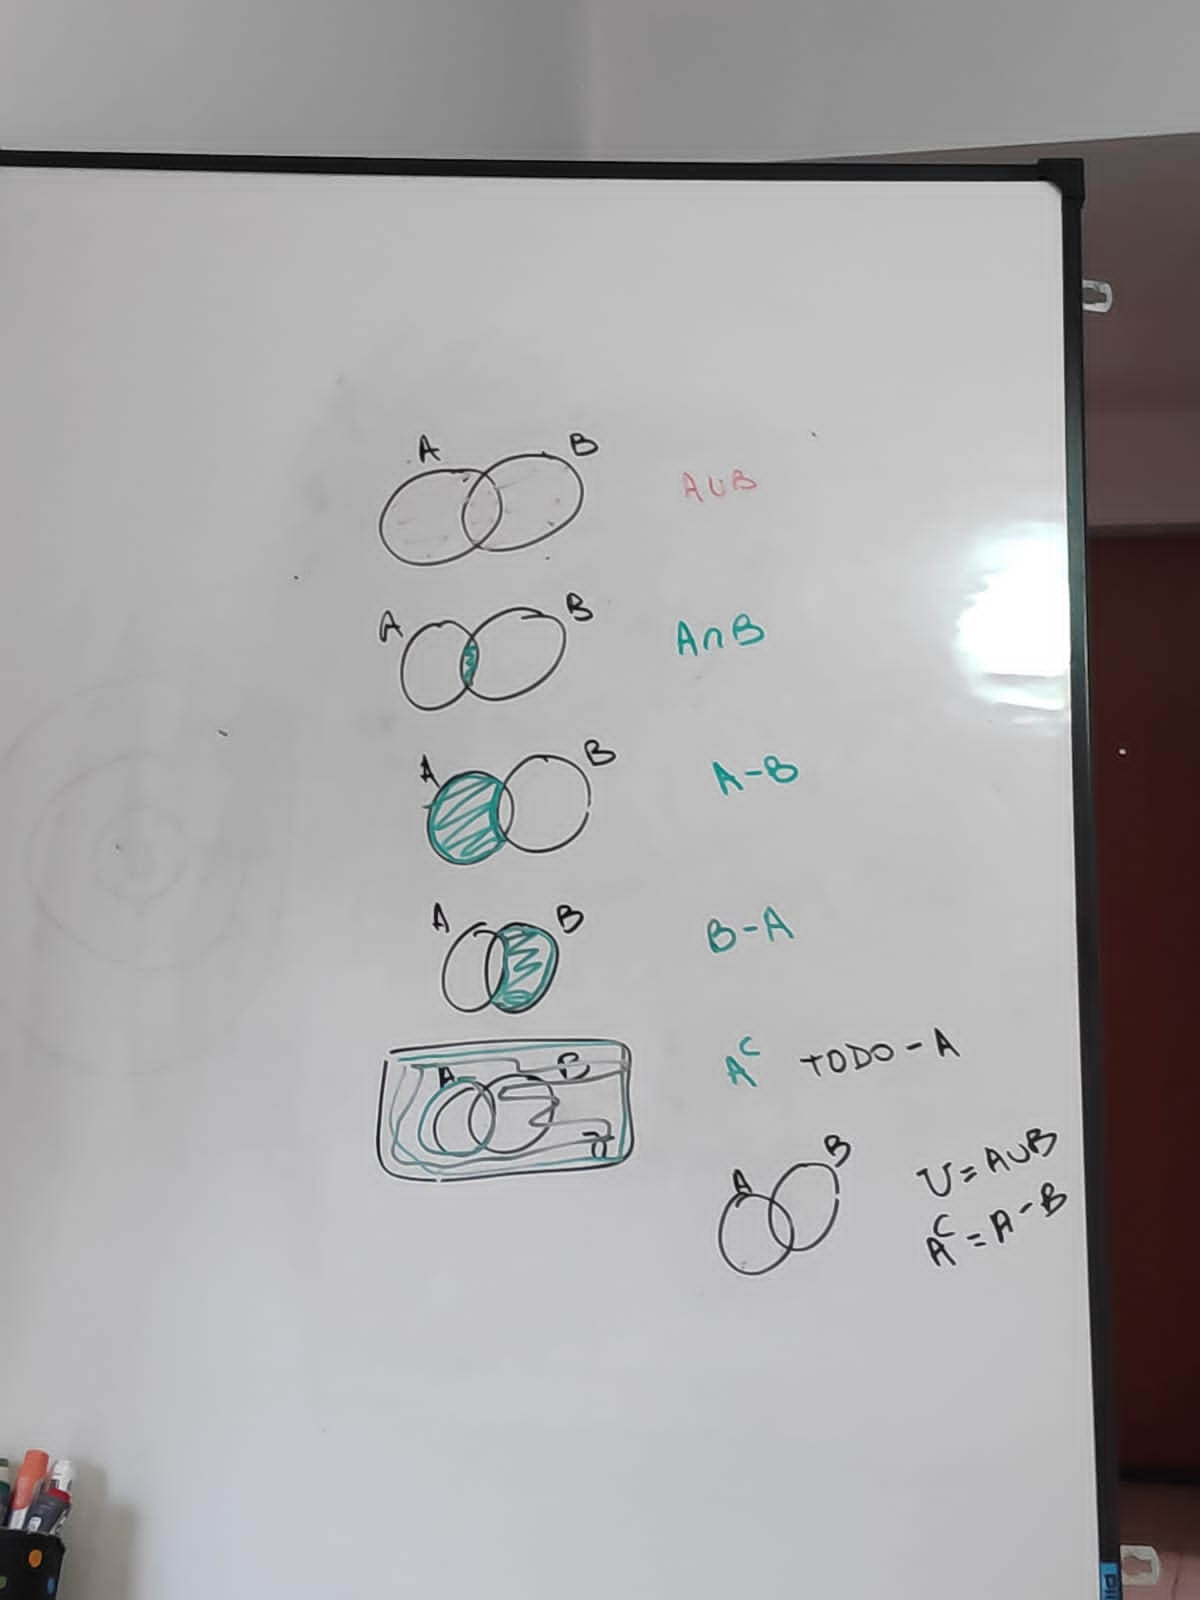 A B A∪B
A B A∩B
A B A-B
A B B-A
A B Aᶜ TODO-A
A B U=A∪B
Aᶜ=A-B